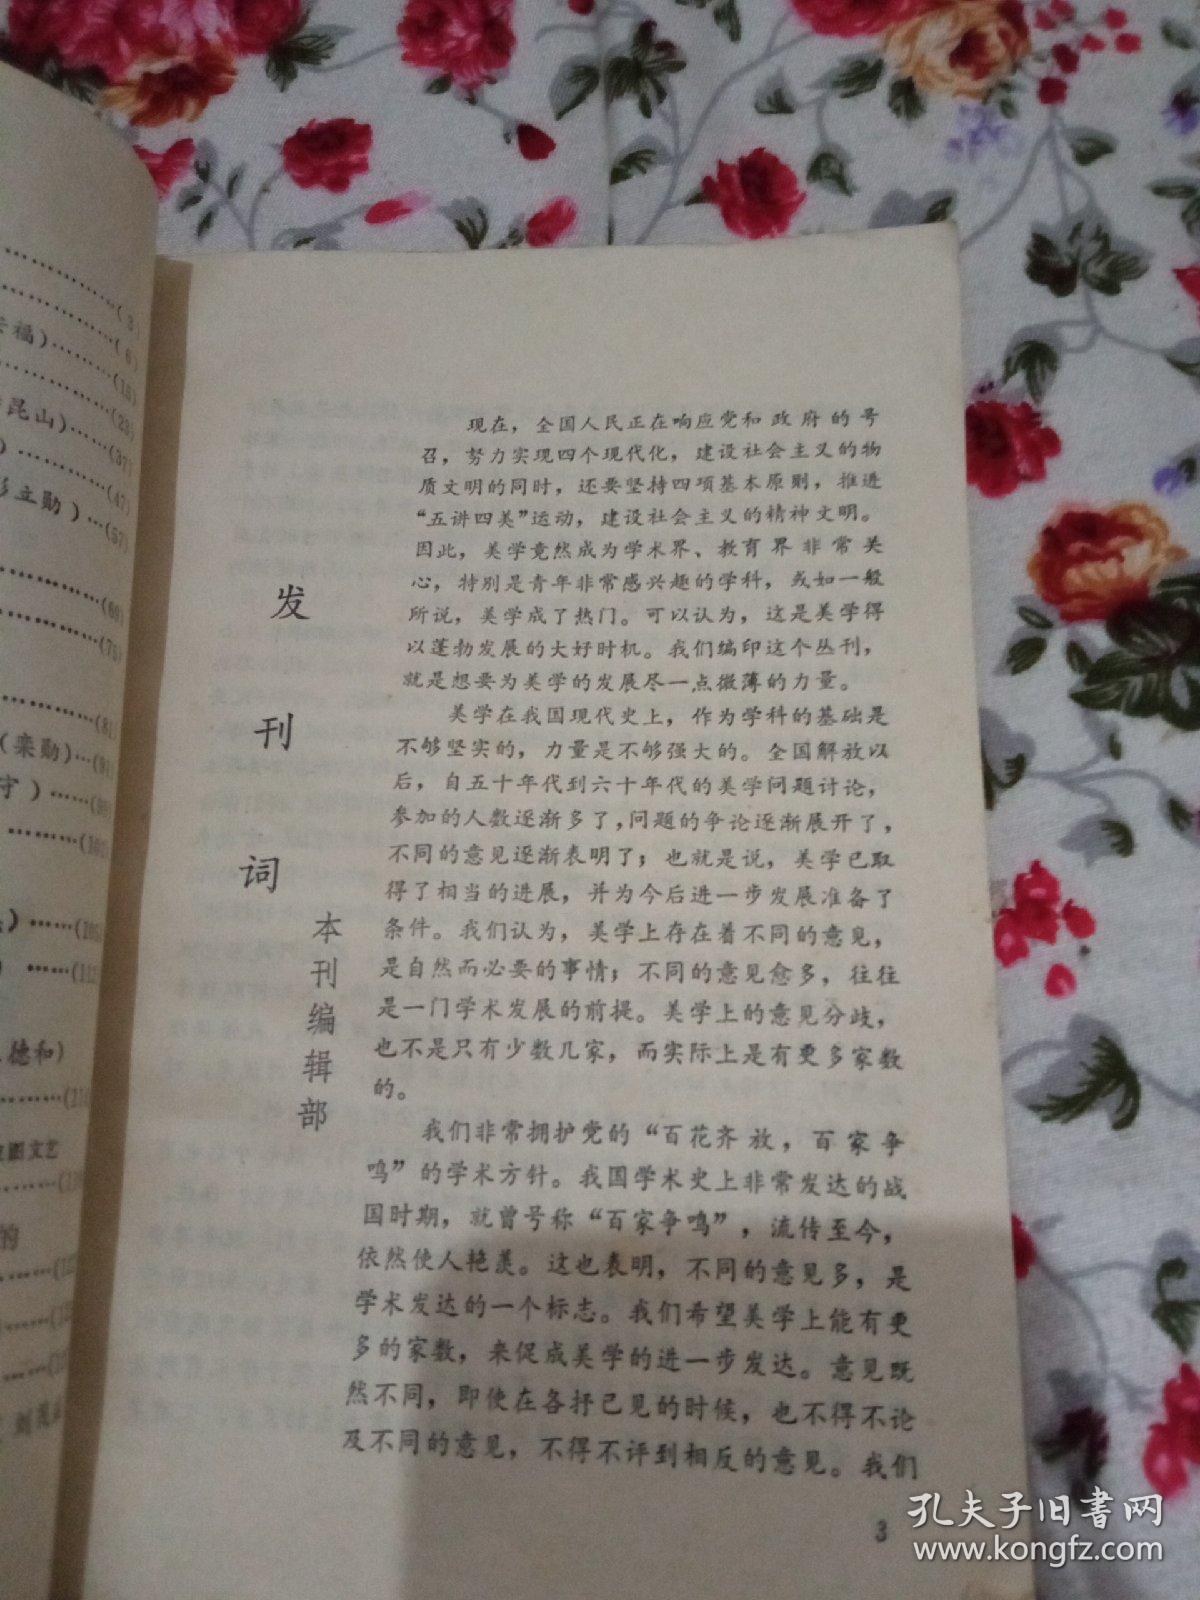 (3)
(6)
福)………(15)
(23)
昆山)……(37)
) ………(47)
彭立勋)…(57)
(69)
(75)
(81)
(栾勋)…(91)
守)……
) ……(11
德和)
文艺
的
发刊词
本刊编辑部
现在，全国人民正在响应党和政府的号
召，努力实现四个现代化，建设社会主义的物
质文明的同时，还要坚持四项基本原则，推进
“五讲四美”运动，建设社会主义的精神文明。
因此，美学竟然成为学术界、教育界非常关
心，特别是青年非常感兴趣的学科，或如一般
所说，美学成了热门。可以认为，这是美学得
以蓬勃发展的大好时机。我们编印这个丛刊，
就是想要为美学的发展尽一点微薄的力量。
美学在我国现代史上，作为学科的基础是
不够坚实的，力量是不够强大的。全国解放以
后，自五十年代到六十年代的美学问题讨论，
参加的人数逐渐多了，问题的争论逐渐展开了，
不同的意见逐渐表明了；也就是说，美学已取
得了相当的进展，并为今后进一步发展准备了
条件。我们认为，美学上存在着不同的意见，
是自然而必要的事情；不同的意见愈多，往往
是一门学术发展的前提。美学上的意见分歧，
也不是只有少数几家，而实际上是有更多家数
的。
我们非常拥护党的“百花齐放，百家争
鸣”的学术方针。我国学术史上非常发达的战
国时期，就曾号称“百家争鸣”，流传至今，
依然使人艳羡。这也表明，不同的意见多，是
学术发达的一个标志。我们希望美学上能有更
多的家数，来促成美学的进一步发达。意见既
然不同，即使在各抒己见的时候，也不得不论
及不同的意见，不得不评到相反的意见。我们
3
孔夫子旧书网
www.kongfz.com